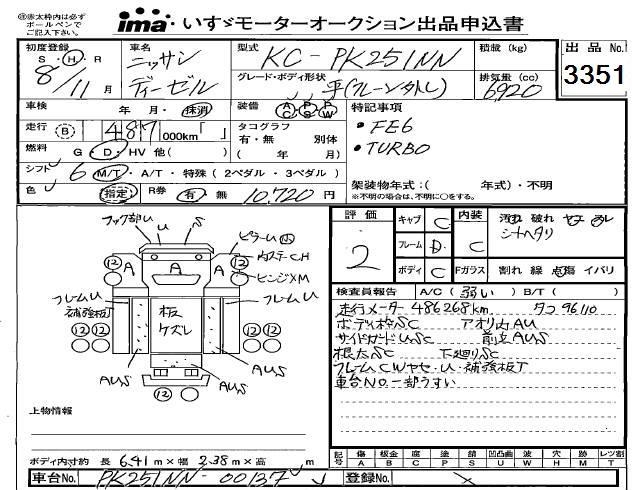 ①赤太枠内は必ず
ボールペンで
ご記入下さい。
ima いすゞモーターオークション出品申込書
初度登録 S・H・R 8/11月
車名 ニッサン ディーゼル
型式 KC-PK251NN
積載 (kg)
出品No. 3351
グレード・ボディ形状 平(クレーン外し)
排気量(cc) 6920
車検 年・月・抹消
装備 AC PS PW
特記事項
・FE6
・TURBO
走行 B 487,000km「 」
タコグラフ 有・無 別体 ( 年 月)
燃料 G・D・HV 他( )
シフト 6 M/T・A/T・特殊(2ペダル・3ペダル)
架装物年式:( 年式)・不明
※不明の場合は、不明に○をする。
色 指定 R券 有・無 10,720円
評価 2
キャブ C
フレーム D
ボディ C
内装 C
Fガラス
汚れ 破れ ヤケ スレ
シートヘタリ
割れ 線 点傷 イバリ
フック部U U S
ピラーU
内ステーCH
ヒンジXM
12 A A A 12
フレームU 補強板T
フレームU
板ケズレ
12 12
12 12
AUS
AUS
AUS
12
検査員報告 A/C(弱い) B/T( )
走行メーター486268km タコ96110
ボディ枠SC アオリ内AU
サイドガードUSC 前立AUS
根太SC 下廻りSC
フレームCWヤセ・U・補強板T
車台No.一部うすい
上物情報
ボディ内寸約 長6.41m×幅2.38m×高 m
記号 傷A 板金B 腐C 塗P 錆S 凹凸曲U 波W 穴H 跡M レツ割T
車台No. PK251NN-00137
登録No.